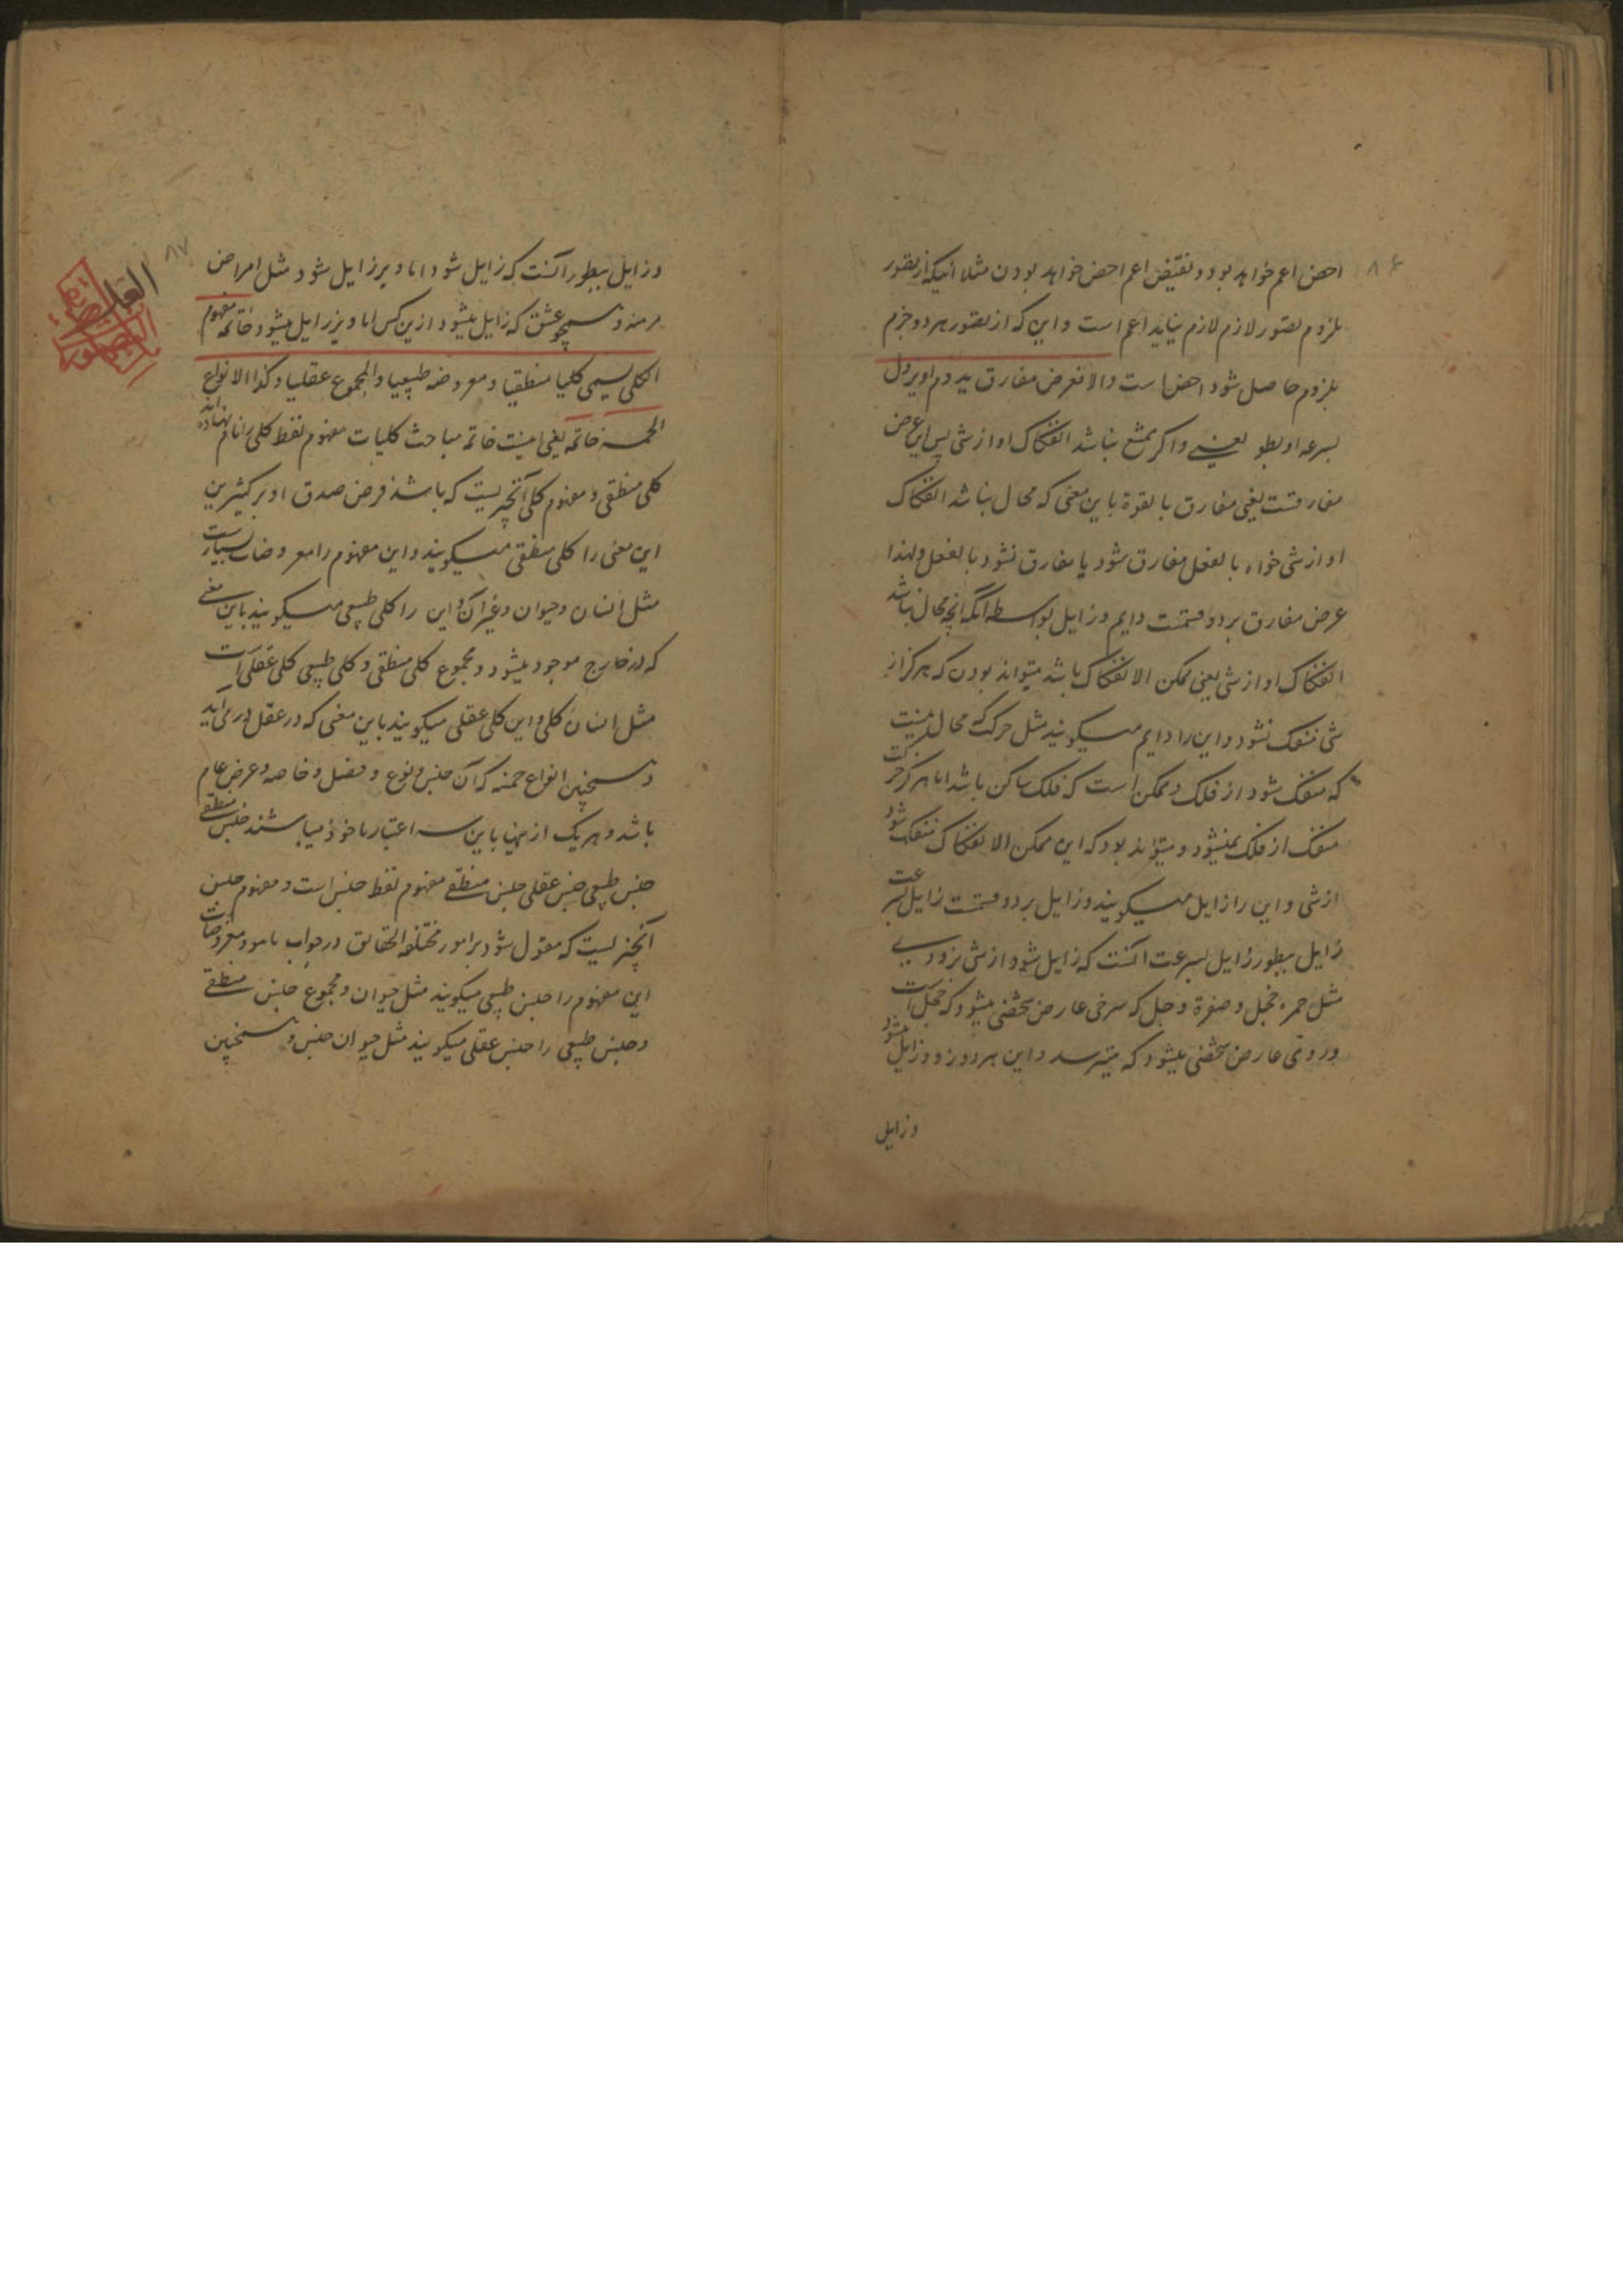 ۸۶
اخص اعم خواهد بود و نقیض اعم اخص خواهد بودن مثلا اینکه از تصور
ملزوم تصور لازم لازم نیاید اعم است و این که از تصور هر دو جزم
بلزوم حاصل شود اخص است والا فعرض مفارق یدوم او یزول
بسرعه او بطو یعنی و اگر ممتنع نباشد انفکاک او از شی پس این عرض
مفارقست یعنی مفارق بالقوة باین معنی که محال نباشد انفکاک
او از شی خواه بالفعل مفارق شود یا مفارق نشود بالفعل ولهذا
عرض مفارق بر دو قسمت دایم و زایل بواسطه آنکه آنچه محال نباشد
انفکاک او از شی یعنی ممکن الانفکاک باشد میتواند بودن که هرگز از
شی منفک نشود و این را دایم میگویند مثل حرکت که محال نیست
که منفک شود از فلک و ممکن است که فلک ساکن باشد اما هرگز حرکت
منفک از فلک نمیشود و میتواند بود که این ممکن الانفکاک منفک شود
از شی و این را زایل میگویند و زایل بر دو قسمت زایل بسرعت
زایل ببطور زایل بسرعت آنست که زایل شود از شی بزودی
مثل حمره خجل و صفرة وجل که سرخی عارض شخصی میشود که خجل است
وردی عارض شخصی میشود که میترسد و این هر دو زود زایل میشود
وزایل
۸۷
وزایل ببطور آنست که زایل شود اما دیر زایل شود مثل امراض
مزمنه و همچو عشق که زایل میشود ازین کس اما دیر زایل میشود خاتمه مفهوم
الکلی یسمی کلیا منطقیا و معروضه طبیعیا والمجموع عقلیا وکذا الانواع
الخمسه خاتمه یعنی اینست خاتمه مباحث کلیات مفهوم لفظ کلی را نام نهاده اند
کلی منطقی و مفهوم کلی آنچیزیست که باشد فرض صدق او بر کثیرین
این معنی را کلی منطقی میگویند و این مفهوم را معروضات بسیارست
مثل انسان وحیوان وغیر آن و این را کلی طبیعی میگویند باین معنی
که در خارج موجود میشود و مجموع کلی منطقی و کلی طبیعی کلی عقلی است
مثل انسان کلی و این کلی عقلی میگویند باین معنی که در عقل در می آید
و همچنین انواع خمسه که آن جنس و نوع و فصل و خاصه و عرض عام
باشد و هر یک ازینها باین سه اعتبار ماخوذ میباشند جنس منطقی
جنس طبیعی جنس عقلی جنس منطقی مفهوم لفظ جنس است و مفهوم جنس
آنچیزیست که مقول شود بر امور مختلفة الحقائق در جواب ماهو و معروضات
این مفهوم را جنس طبیعی میگویند مثل حیوان و مجموع جنس منطقی
و جنس طبیعی را جنس عقلی میگویند مثل حیوان جنس و همچنین